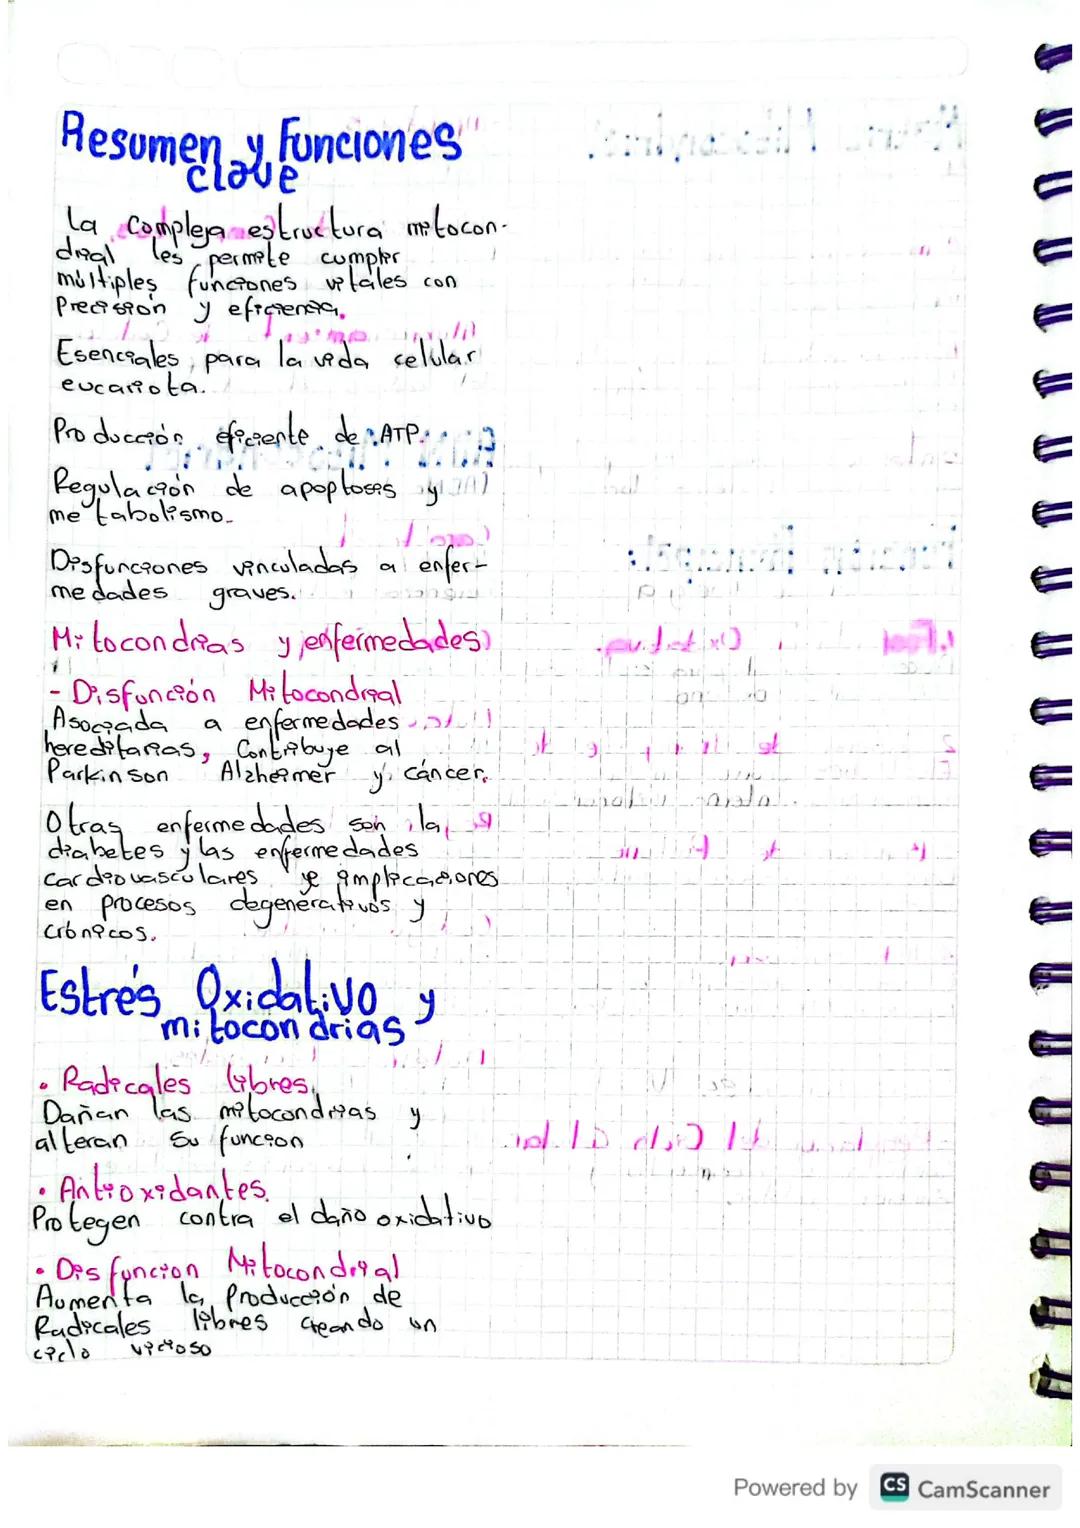 Resumen y Funciones
clave
La compleja estructura mitocon-
drial les permite cumplir
múltiples funciones vitales con
Precisión y eficiencia.
Esenciales para la vida celular
eucariota.
Producción eficiente de ATP.
Regulación de apoptosis y
metabolismo.
Disfunciones vinculadas a enfer-
medades graves.
Mitocondrias y enfermedades
- Disfunción Mitocondrial
Asociada a enfermedades
hereditarias, Contribuye al
Parkinson Alzheimer y cáncer.
Otras enfermedades son la
diabetes y las enfermedades
cardiovasculares e implicaciones
en procesos degenerativos y
crónicos.
Estrés Oxidativo y
mitocondrias
• Radicales libres.
Dañan las mitocondrias y
alteran su funcion
• Antioxidantes.
Protegen contra el daño oxidativo
• Disfuncion Mitocondrial
Aumenta la Producción de
Radicales libres creando un
ciclo vicioso
Powered by CS CamScanner